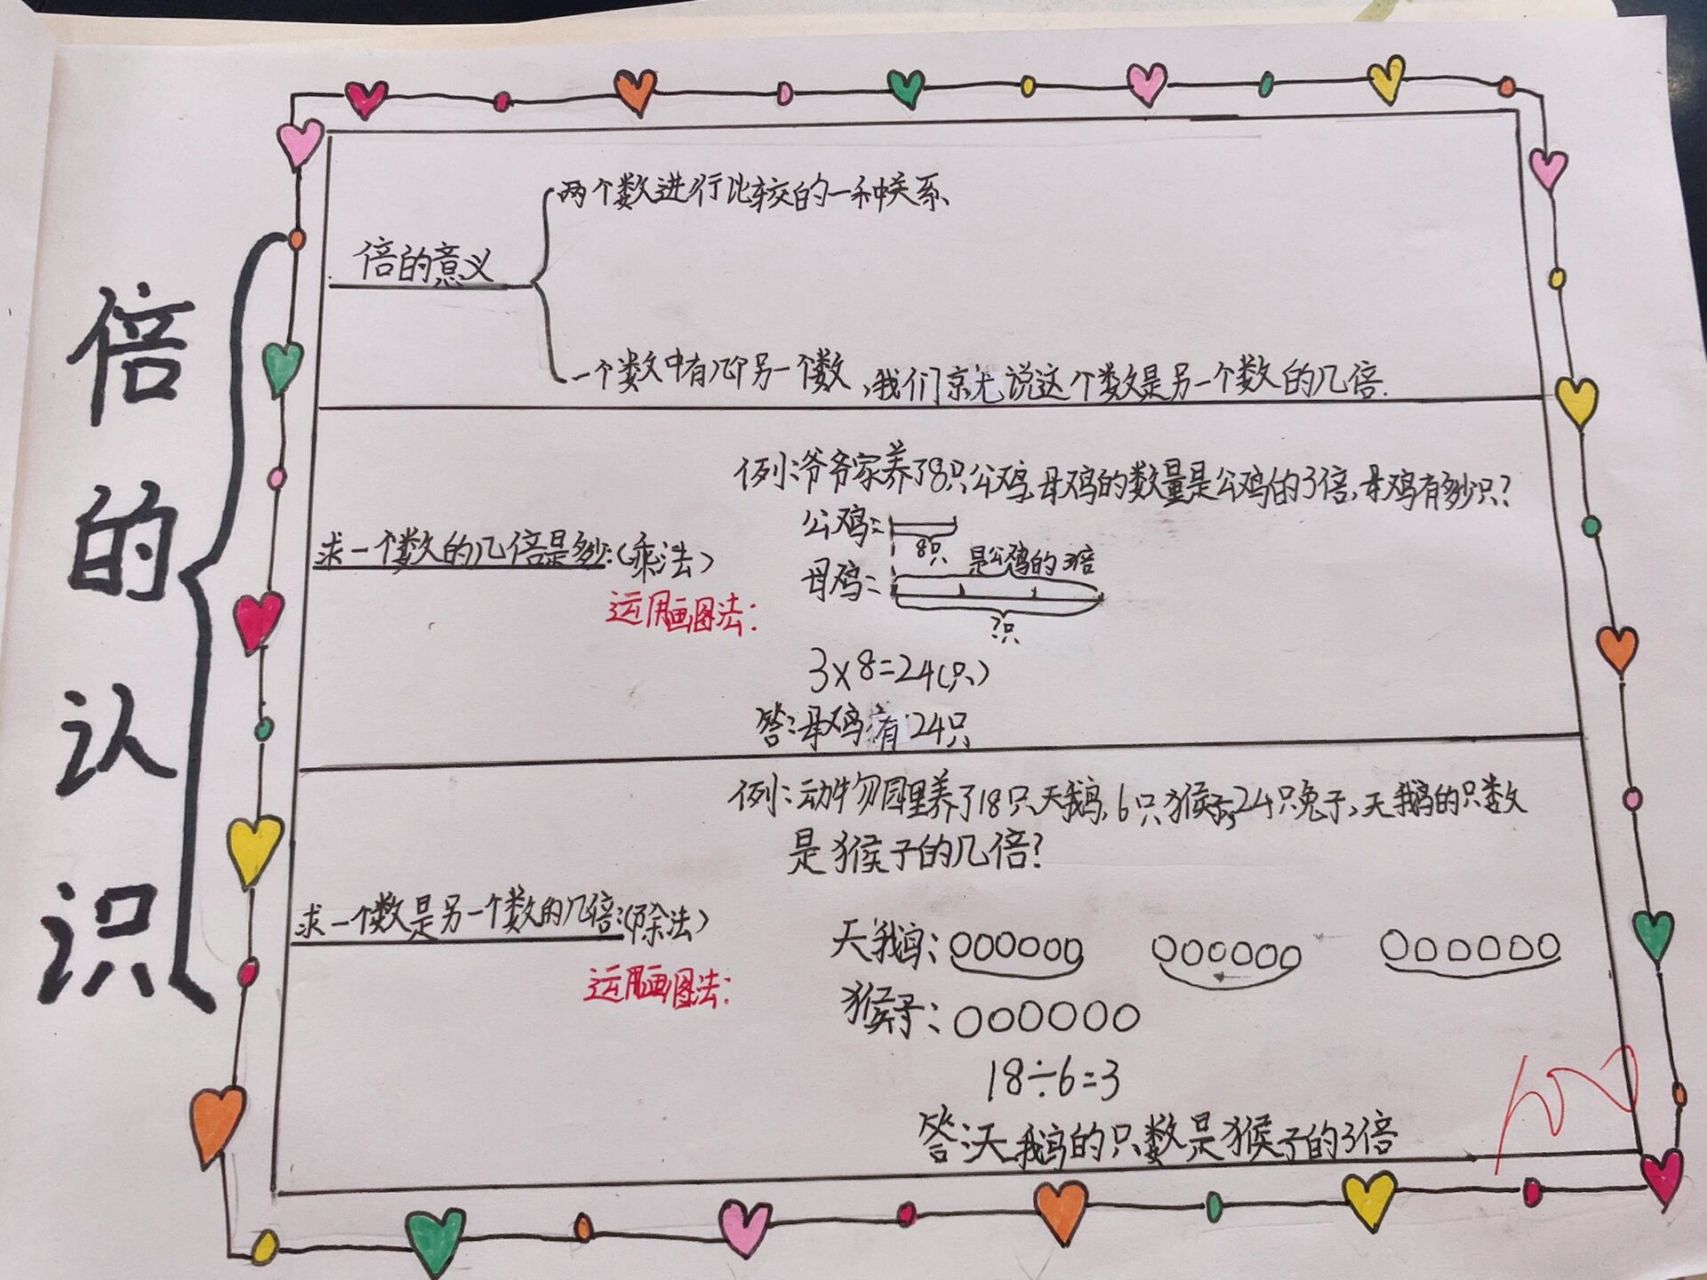 倍的认识
两个数进行比较的一种关系、
倍的意义
一个数中有几个另一个数,我们就说这个数是另一个数的几倍.
例:爷爷家养了8只公鸡,母鸡的数量是公鸡的3倍,母鸡有多少只?
公鸡:
8只
求一个数的几倍是多少:(乘法)
是公鸡的3倍
母鸡:
运用画图法:
?只
3×8=24(只)
答:母鸡有24只
例:动物园里养了18只天鹅,6只猴子,24只兔子,天鹅的只数
是猴子的几倍?
求一个数是另一个数的几倍:(除法)
天鹅:
运用画图法:
猴子:
18÷6=3
答:天鹅的只数是猴子的3倍
100